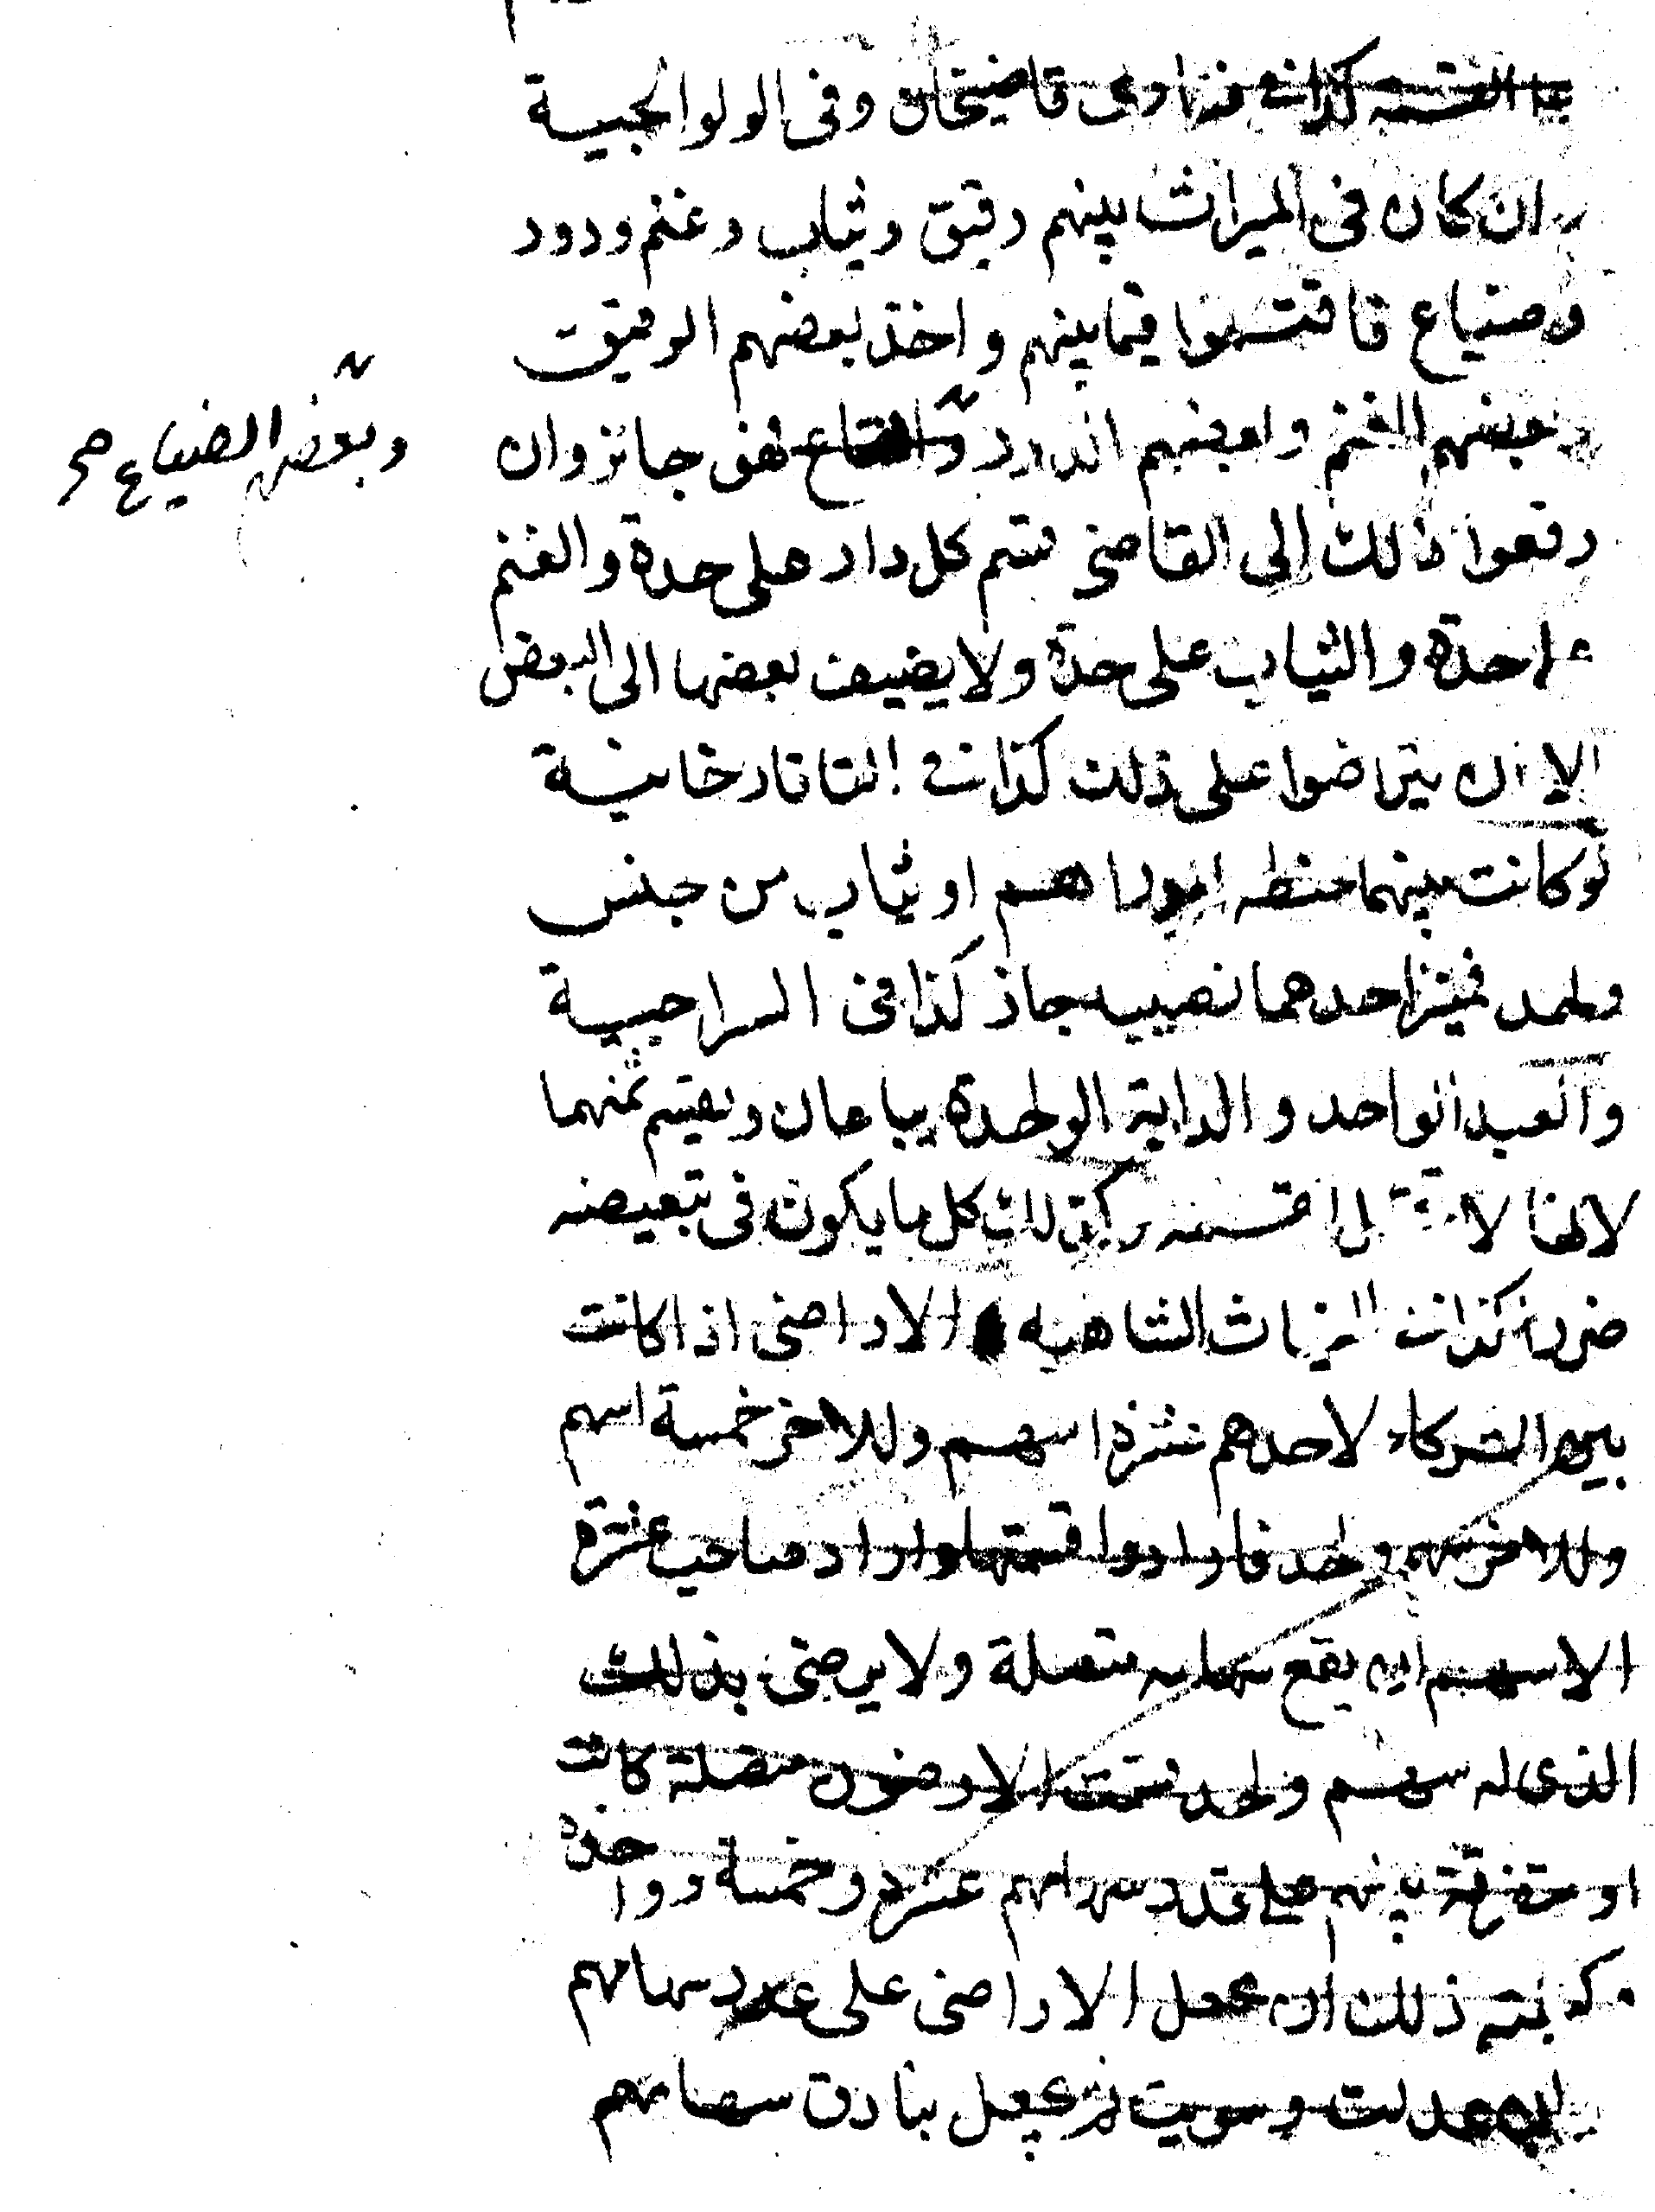 على القسمة كذا في فتاوى قاضيخان وفى الولوالجية
ان كان فى الميراث بينهم رقيق وثياب وغنم ودور
وضياع فاقتسموا فيما بينهم واخذ بعضهم الرقيق
وبعضهم الغنم وبعضهم الدور فهو جائز وان
وبعضهم الضياع صح
رفعوا ذلك الى القاضى قسم كل دار على حدة والغنم
على حدة والثياب على حدة ولا يضيف بعضها الى البعض
الا ان يتراضوا على ذلك كذا في التاتارخانية
لو كانت بينهما حنطة او دراهم او ثياب من جنس
واحد فميز احدهما نصيبه جاز كذا فى السراجية
والعبد الواحد والدابة الواحدة يباعان ويقسم ثمنهما
لانها لا القسمة وكذلك كل ما يكون فى تبعيضه
ضرر كذا في الشاهيه الاراضى اذا كانت
بين الشركاء لاحدهم عشرة اسهم وللاخر خمسة اسهم
وللاخر سهم واحد فارادوا قسمتها واراد صاحب عشرة
الاسهم ان يقع سهامه متصلة ولا يرضى بذلك
الذى له سهم واحد قسمت الارضون متصلة كانت
او متفرقة بينهم على قدر سهامهم عشرة وخمسة وواحدة
وكيفية ذلك ان يجعل الاراضى على عدد سهامهم
ان عدلت وسويت ثم يجعل بنادق سهامهم